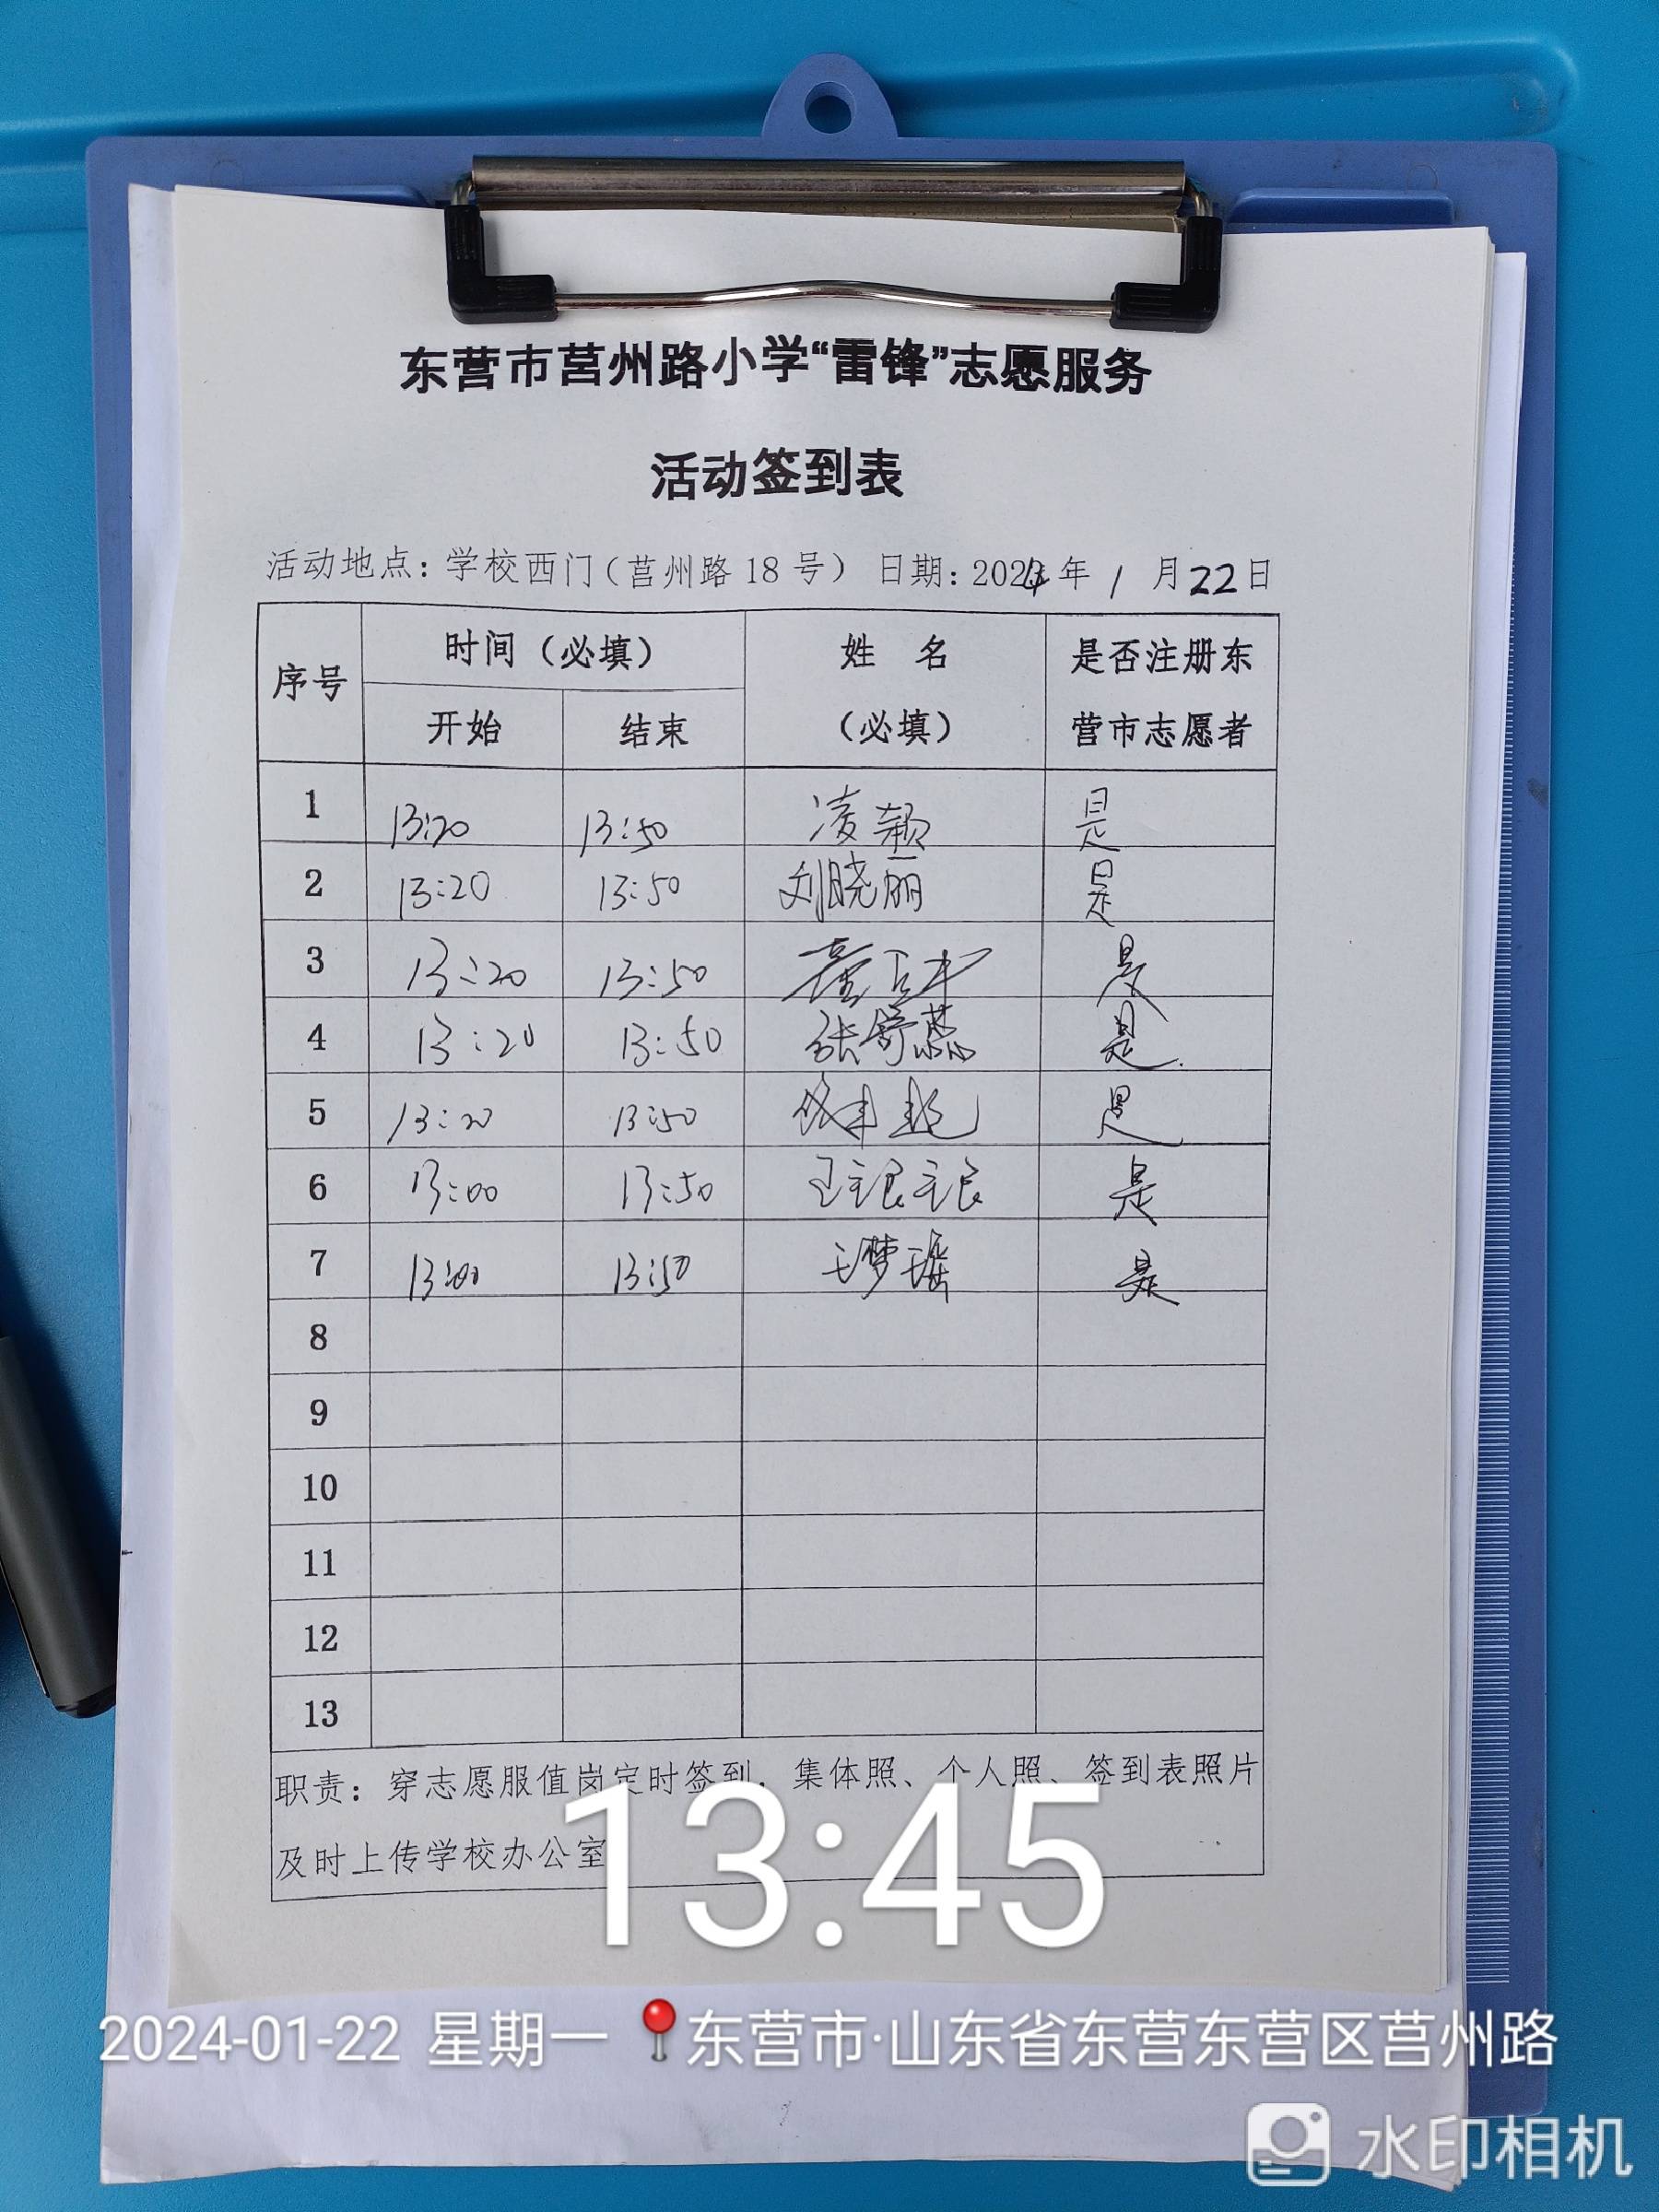 东营市莒州路小学“雷锋”志愿服务
活动签到表
活动地点：学校西门（莒州路18号） 日期：2024年 1 月22日
序号 时间（必填） 姓 名 （必填） 是否注册东营市志愿者
开始 结束
1 13:20 13:50 凌颖 是
2 13:20 13:50 刘晓丽 是
3 13:20 13:50 是
4 13:20 13:50 张舒蕊 是
5 13:20 13:50 是
6 13:00 13:50 王琅琅 是
7 13:00 13:50 王梦瑶 是
8
9
10
11
12
13
职责：穿志愿服值岗定时签到，集体照、个人照、签到表照片
及时上传学校办公室
13:45
2024-01-22 星期一 东营市·山东省东营东营区莒州路
水印相机